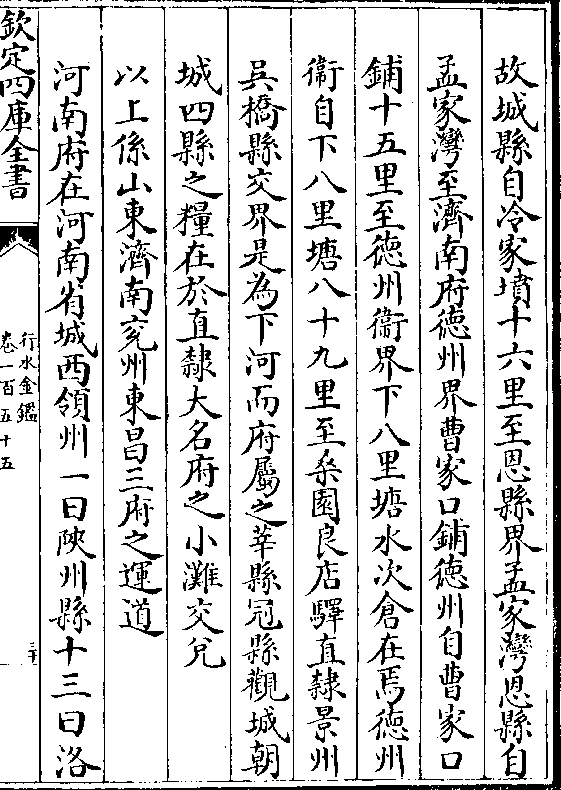 故城縣自冷家墳十六里至恩縣界孟家灣恩縣自
孟家灣至濟南府德州界曹家口鋪德州自曹家口
鋪十五里至德州衞界下八里塘水次倉在焉德州
衞自下八里塘八十九里至桑園良店驛直隸景州
吳橋縣交界是為下河而府屬之莘縣冠縣觀城朝
城四縣之糧在於直隸大名府之小灘交兌
以上係山東濟南兖州東昌三府之運道
河南府在河南省城西領州一曰陜州縣十三曰洛
欽定四庫全書
行水金鑑
卷一百五十五
三十